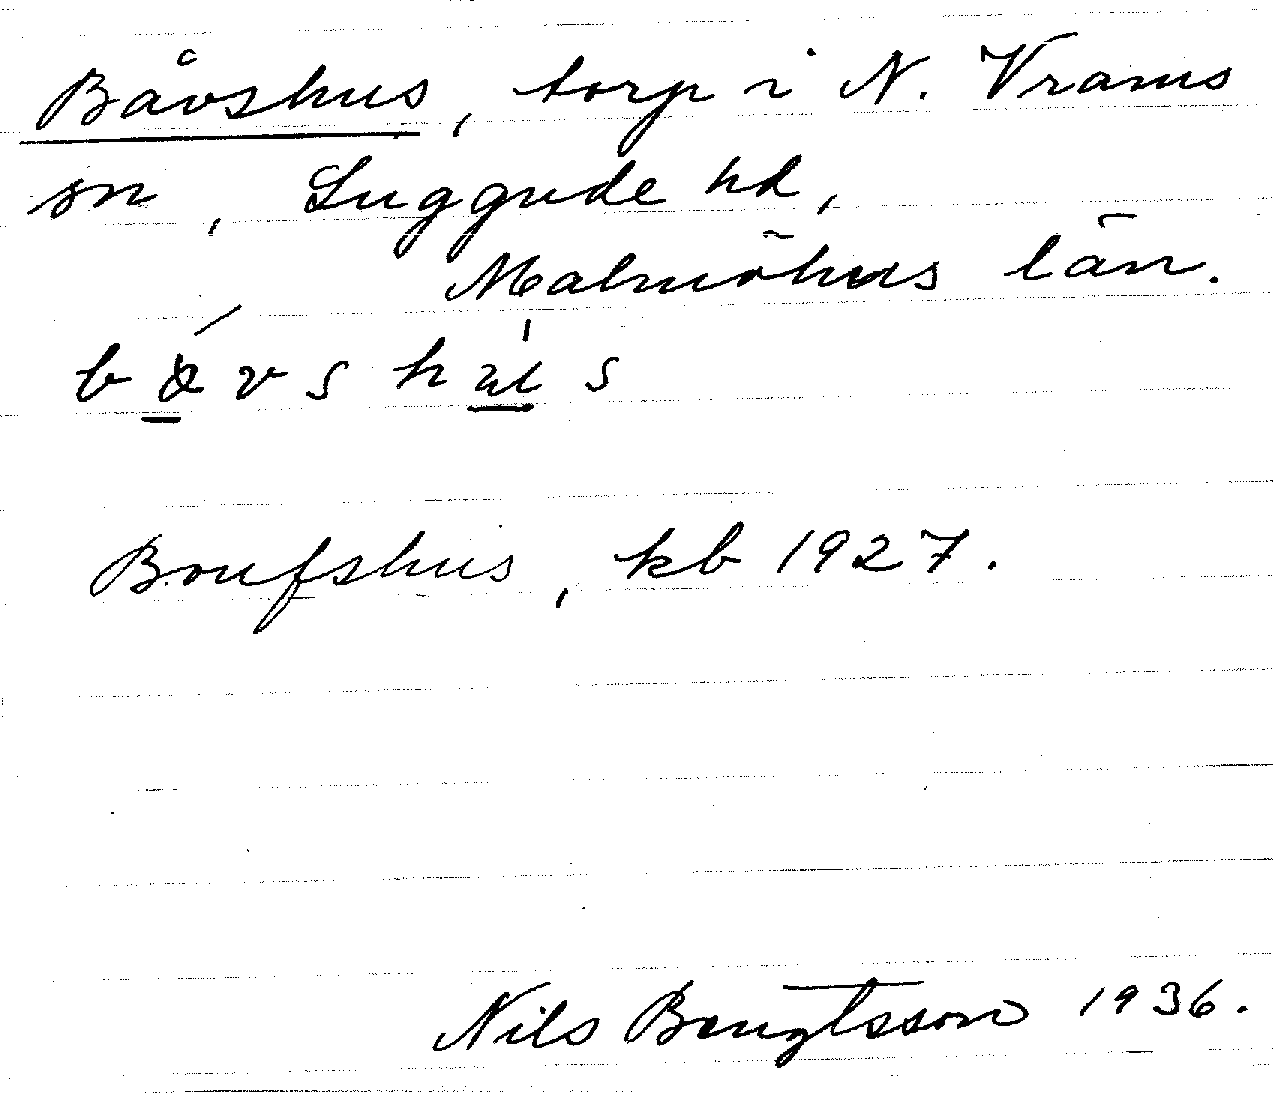 Båvshus, torp i N. Vrams
sn, Luggude hd,
Malmöhus län.
Boufshus, kb 1927.
Nils Bengtsson 1936.